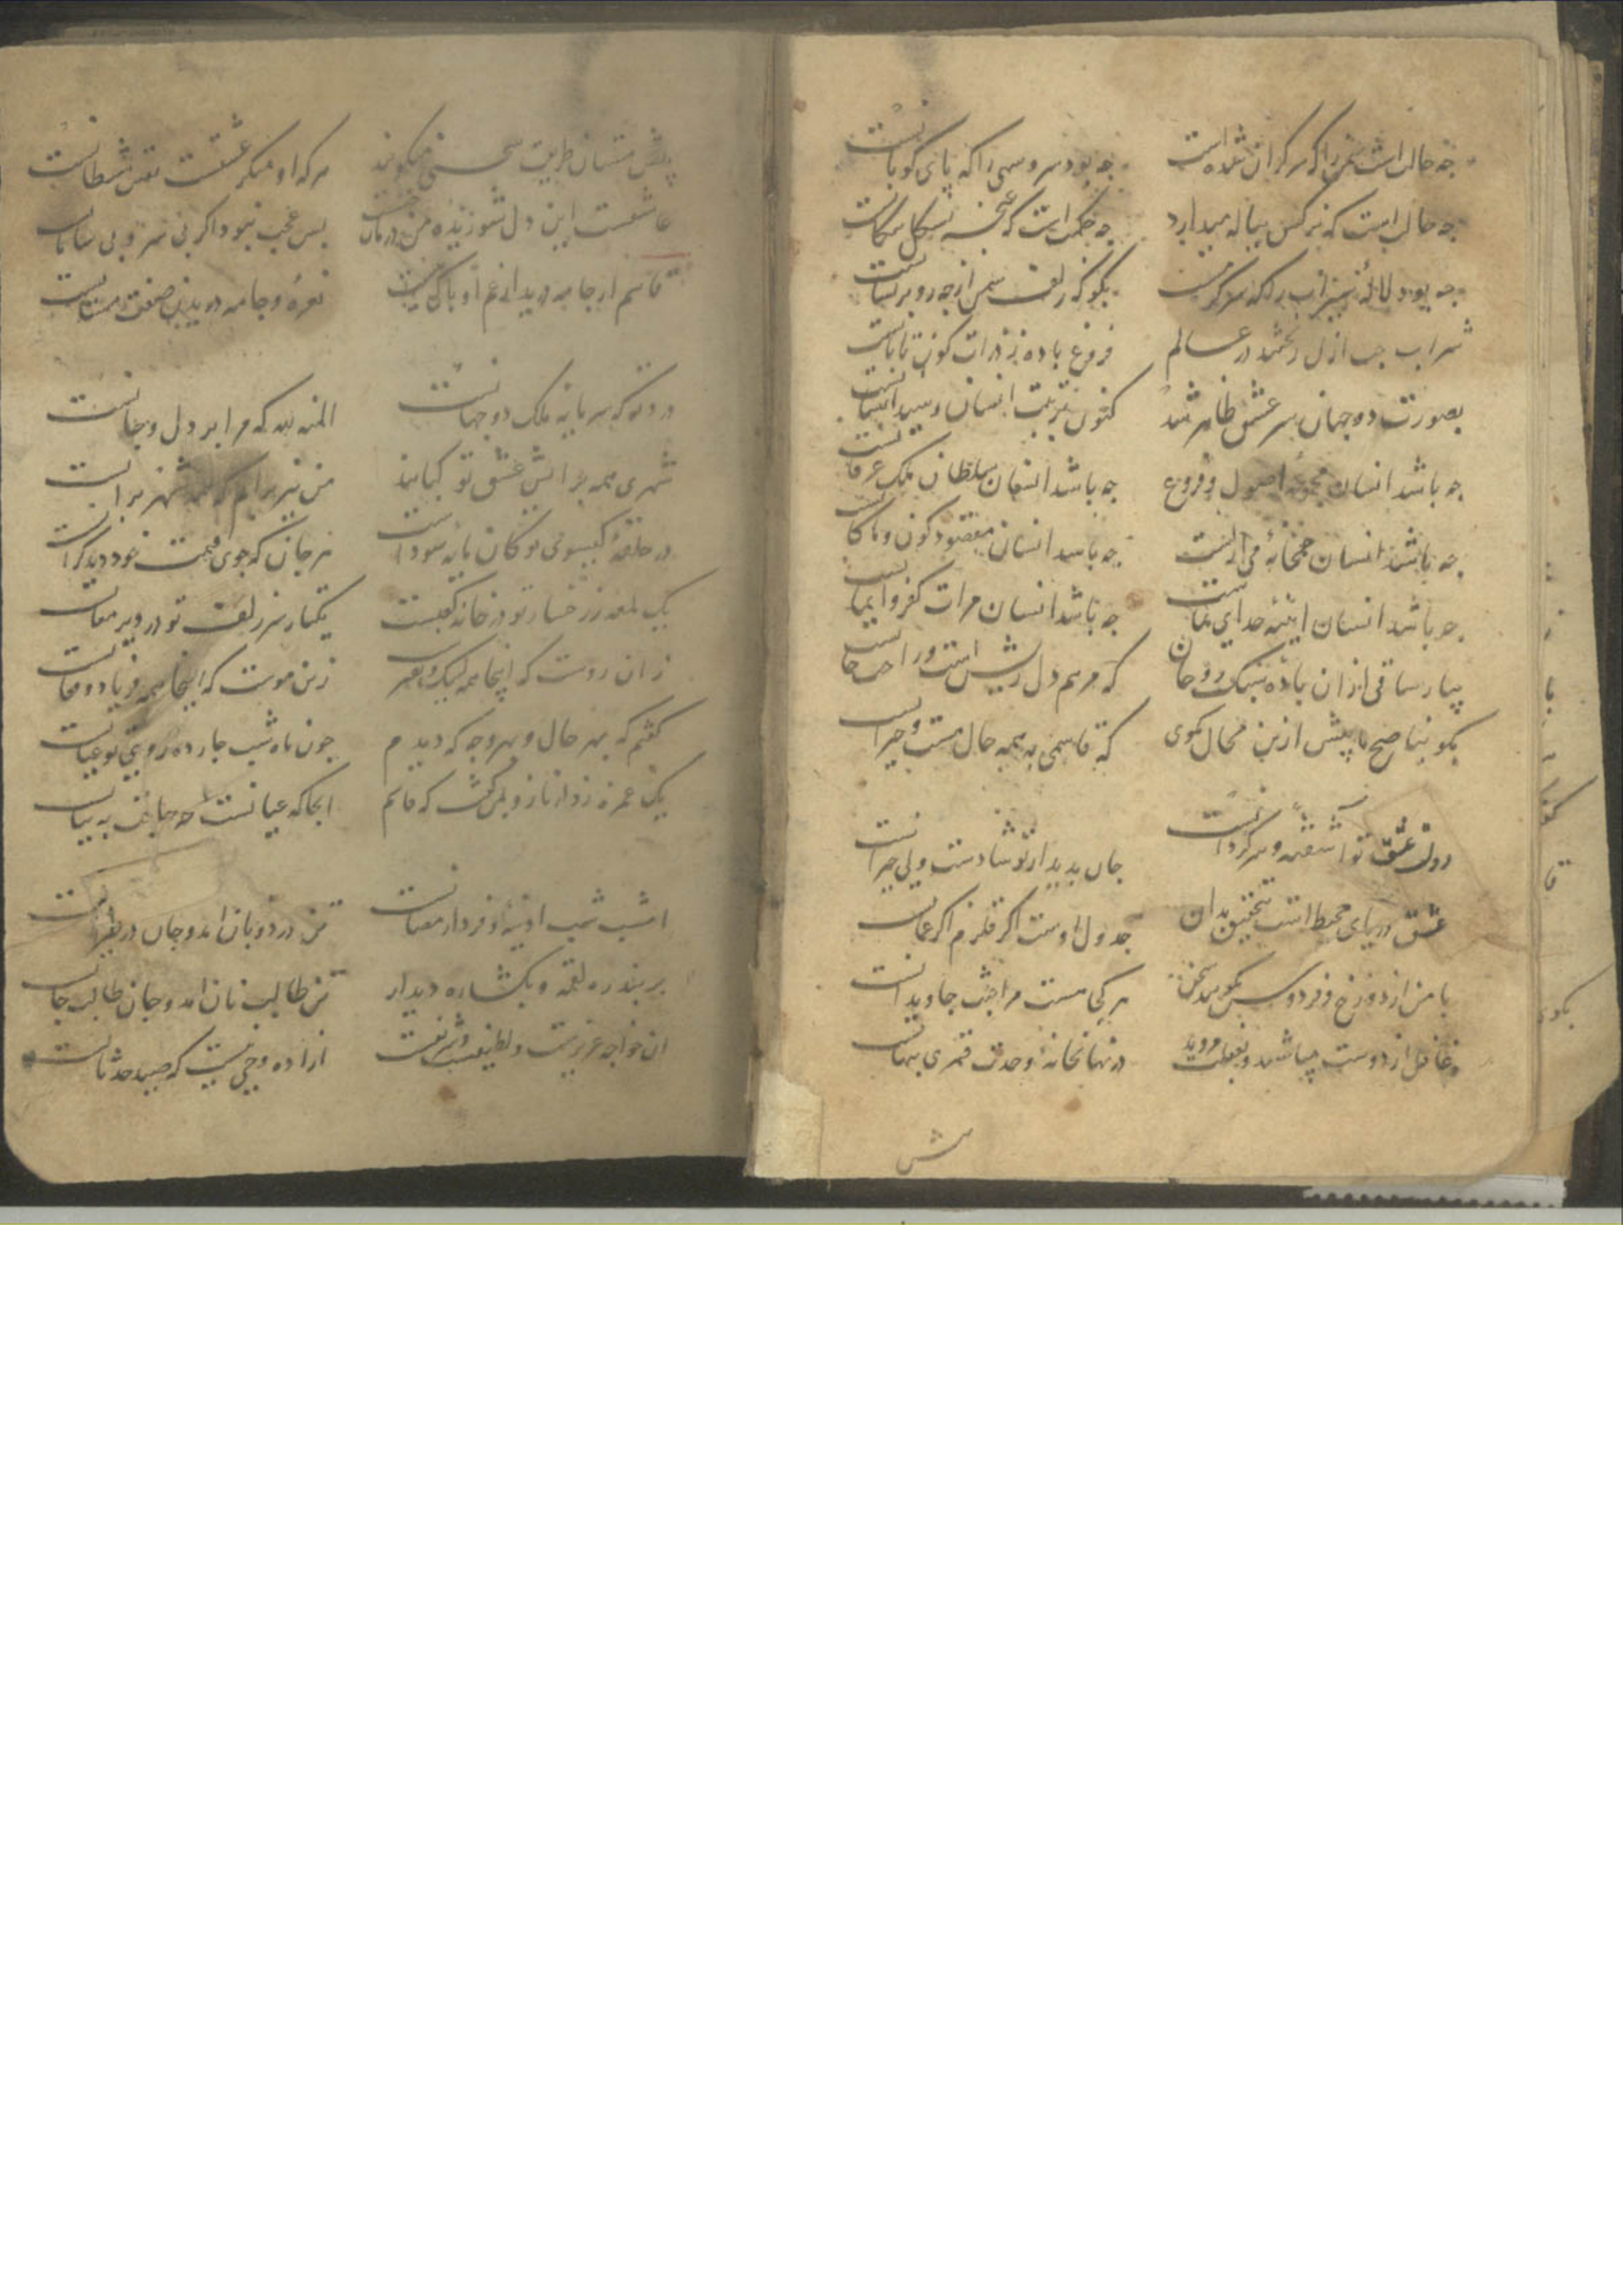 چه حالست سخن را که سرکران شده است چه بود سرو سهی را که پای کوبانست
چه حالست که نرکس پیاله میدارد چه حکمت است که غنچه بشکل پیکانست
چه بود لاله سیراب را که بکو که زلف سمن از چه رو پریشانست
شراب حب ازل ریختند در عالم فروغ باده ز ذرات کون تابانست
بصورت دو جهان سر عشق ظاهر شد کنون تربیت انسان رسید انسانست
چه باشد انسان مجموعه اصول و فروع چه باشد انسان سلطان ملک عرفانست
چه باشد انسان خمخانه می ازلیست چه باشد انسان مقصود کون و مکانست
چه باشد انسان اینه خدای نماست چه باشد انسان مرات کفر و ایمانست
بیار ساقی ازان باده سبک روحان که مرهم دل ریش است و راحت جانست
بکو بناصح ما بیش ازین محال مکوی که قاسمی بهمه حال مست و حیرانست
دل ز عشق تو اشفته و سرکردانست جان بدیدار تو شادست ولی حیرانست
عشق دریای محیط است بتحقیق بدان جدول اوست اکر قلزم اکر عمانست
با من از دوزخ و فردوس مکویید سخن هر کجا هست مراجنت جاویدانست
غافل از دوست مباشید و بغفلت مروید در نهانخانه وحدت قمری پنهانست
پیش
پیش مستان طریقت سخنی میکویند هر که او منکر عشقست نفس شیطانست
عاشقست این دل شوریده من بس عجب نبود اکر بی سر و بی سامانست
قاسم ار جامه درید از غم او باکی نیست نعره و جامه دریدن صفت مستانست
درد تو که سرمایه ملک دو جهانست المنه لله که مرا بر دل و جانست
شهری همه بر اتش عشق تو کبابند من نیز برانم که همه شهر برانست
در حلقه کیسوی تو کان مایه سودا ست هر جان که جوی قیمت خود دید کرانست
یک لمعه ز رخسار تو در خانه کعبست یکتار سر زلف تو در دیر مغانست
زان روست که اینجا همه لبیک و نفیر است زین موست که اینجا همه فریاد و فغانست
کفتم که بهر حال و بهر وجه که دیدم چون ماه شب چارده روی تو عیانست
یک غمزه زد از ناز و بمن کفت که قاسم انجا که عیانست چه حاجت به بیانست
امشب شب ادینه و فردا رمضانست تن در دو بان امد و جان در طیرانست
بر بند ره لقمه و بکشا ره دیدار تن طالب نان امد و جان طالب جانست
ان خواجه عزیزست و لطیفست و شریفست ازاده و حی نیست که صید حدثانست